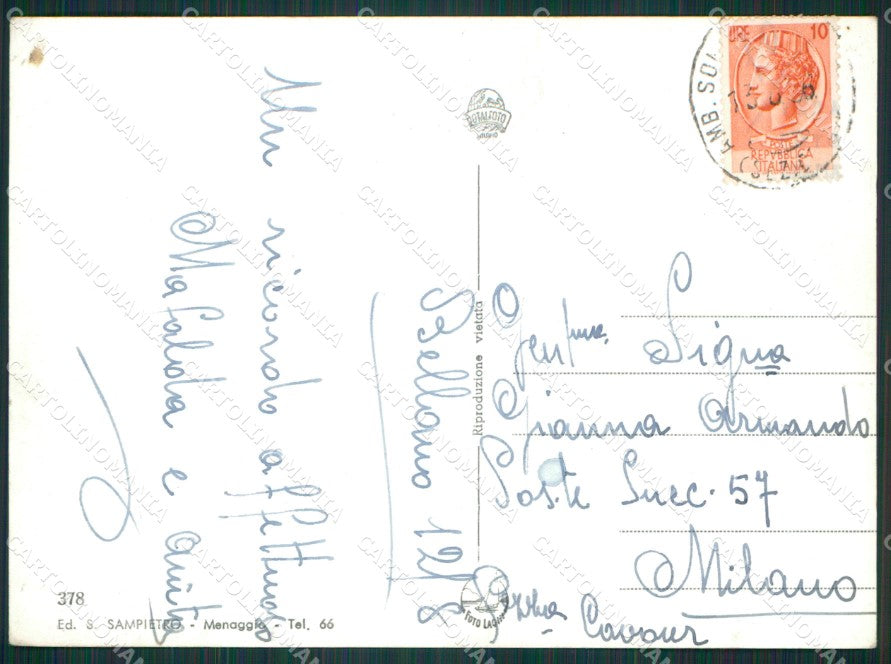 Un ricordo affettuoso
Mafalda e Anita
Bellano 12/8
Riproduzione vietata
ITALFOTO
LIRE 10
POSTE
REPVBBLICA
ITALIANA
AMB.
Gent.ma Sig.na
Gianna Armando
Poste Succ. 57
Milano
Cavour
378
Ed. S. SAMPIETRO - Menaggio - Tel. 66
CARTOLINOMANIA